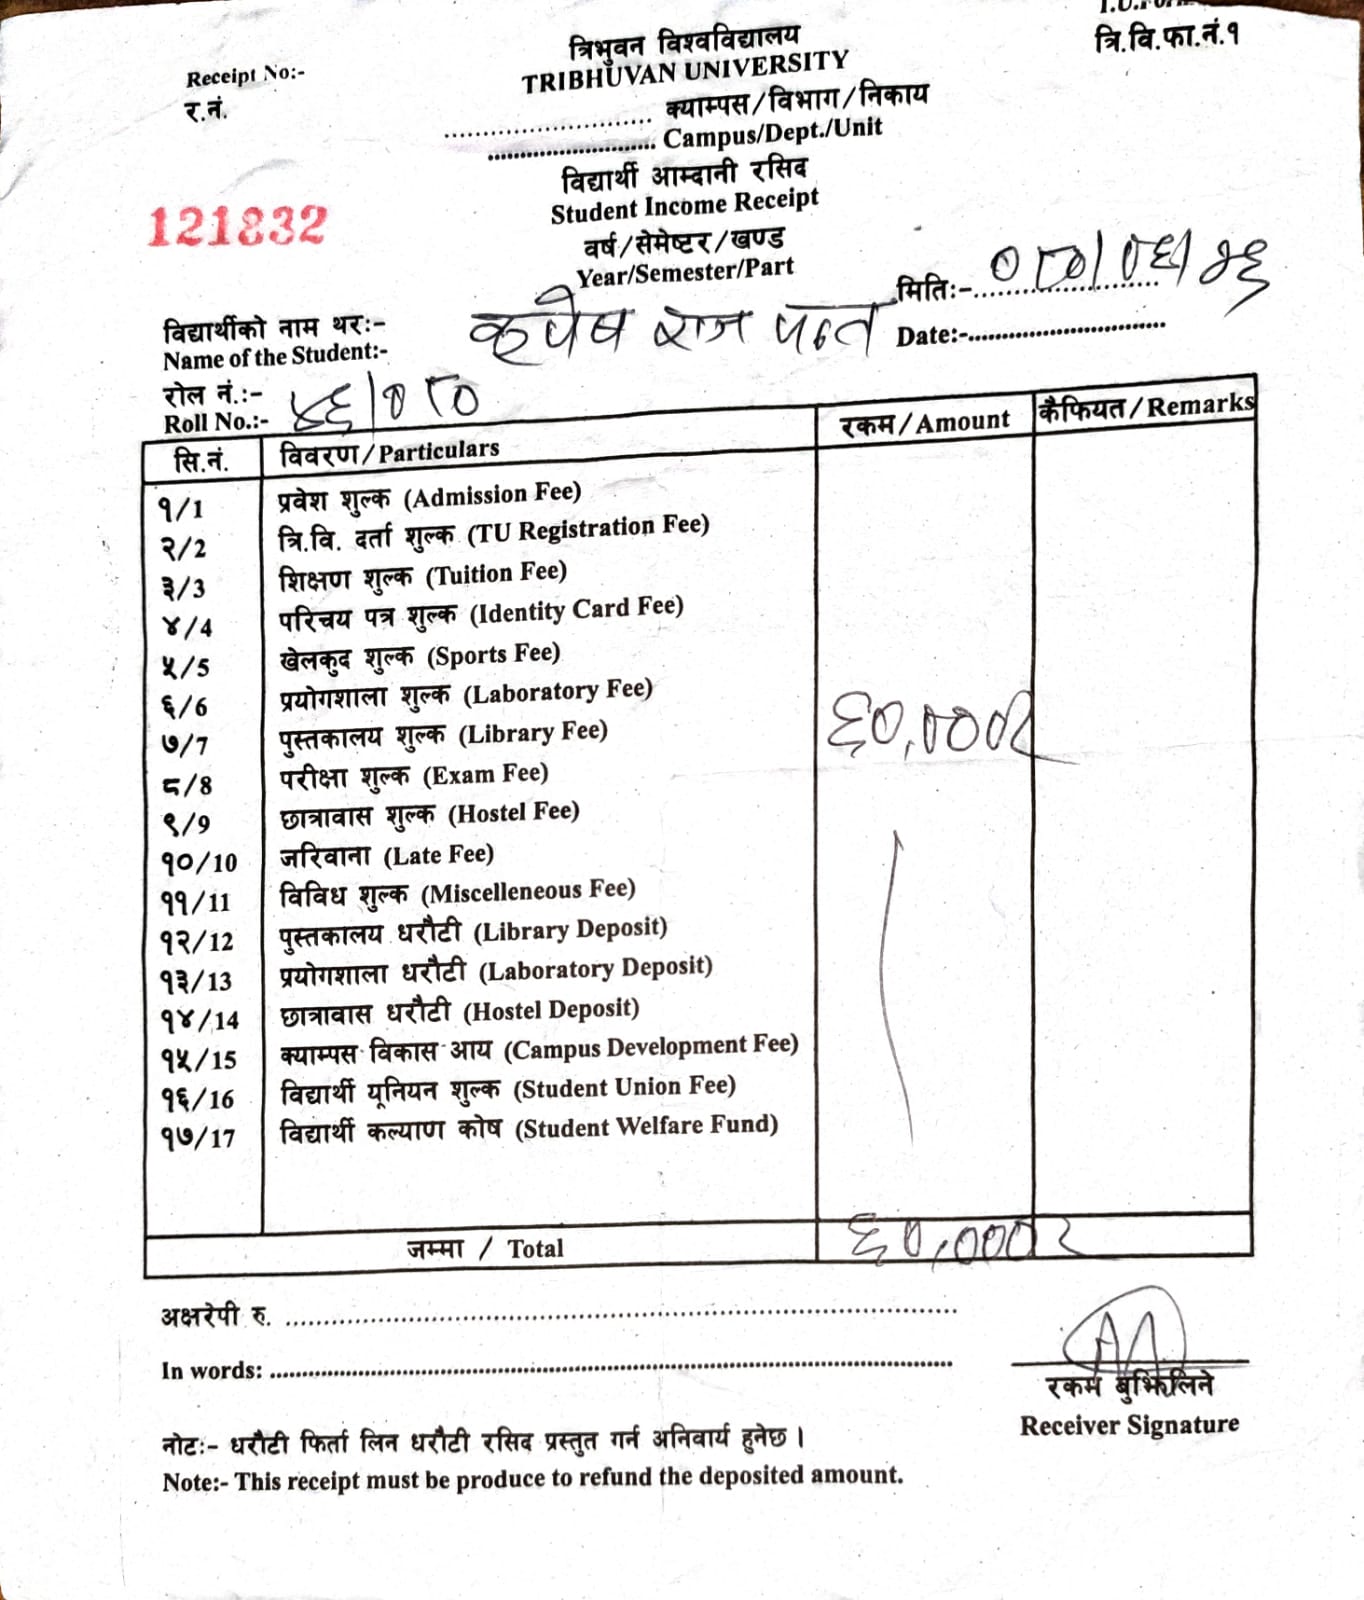 त्रि.वि.फा.नं.१
Receipt No:-
र.नं.
त्रिभुवन विश्वविद्यालय
TRIBHUVAN UNIVERSITY
........................... क्याम्पस/विभाग/निकाय
........................... Campus/Dept./Unit
विद्यार्थी आम्दानी रसिद
Student Income Receipt
121832
वर्ष/सेमेष्टर/खण्ड
Year/Semester/Part
मिति:- ०८०/०६/२६
विद्यार्थीको नाम थर:- रुपेष राज पन्त
Name of the Student:-
Date:-..............................
रोल नं.:-
Roll No.:- ४६/०८०
सि.नं. विवरण/Particulars रकम/Amount कैफियत/Remarks
१/1 प्रवेश शुल्क (Admission Fee)
२/2 त्रि.वि. दर्ता शुल्क (TU Registration Fee)
३/3 शिक्षण शुल्क (Tuition Fee)
४/4 परिचय पत्र शुल्क (Identity Card Fee)
५/5 खेलकुद शुल्क (Sports Fee)
६/6 प्रयोगशाला शुल्क (Laboratory Fee)
७/7 पुस्तकालय शुल्क (Library Fee) ६०,०००/-
८/8 परीक्षा शुल्क (Exam Fee)
९/9 छात्रावास शुल्क (Hostel Fee)
१०/10 जरिवाना (Late Fee)
११/11 विविध शुल्क (Miscelleneous Fee)
१२/12 पुस्तकालय धरौटी (Library Deposit)
१३/13 प्रयोगशाला धरौटी (Laboratory Deposit)
१४/14 छात्रावास धरौटी (Hostel Deposit)
१५/15 क्याम्पस विकास आय (Campus Development Fee)
१६/16 विद्यार्थी यूनियन शुल्क (Student Union Fee)
१७/17 विद्यार्थी कल्याण कोष (Student Welfare Fund)
जम्मा / Total ६०,०००/-
अक्षरेपी रु. ..............................
In words: ..............................
रकम बुझिलिने
Receiver Signature
नोट:- धरौटी फिर्ता लिन धरौटी रसिद प्रस्तुत गर्न अनिवार्य हुनेछ ।
Note:- This receipt must be produce to refund the deposited amount.